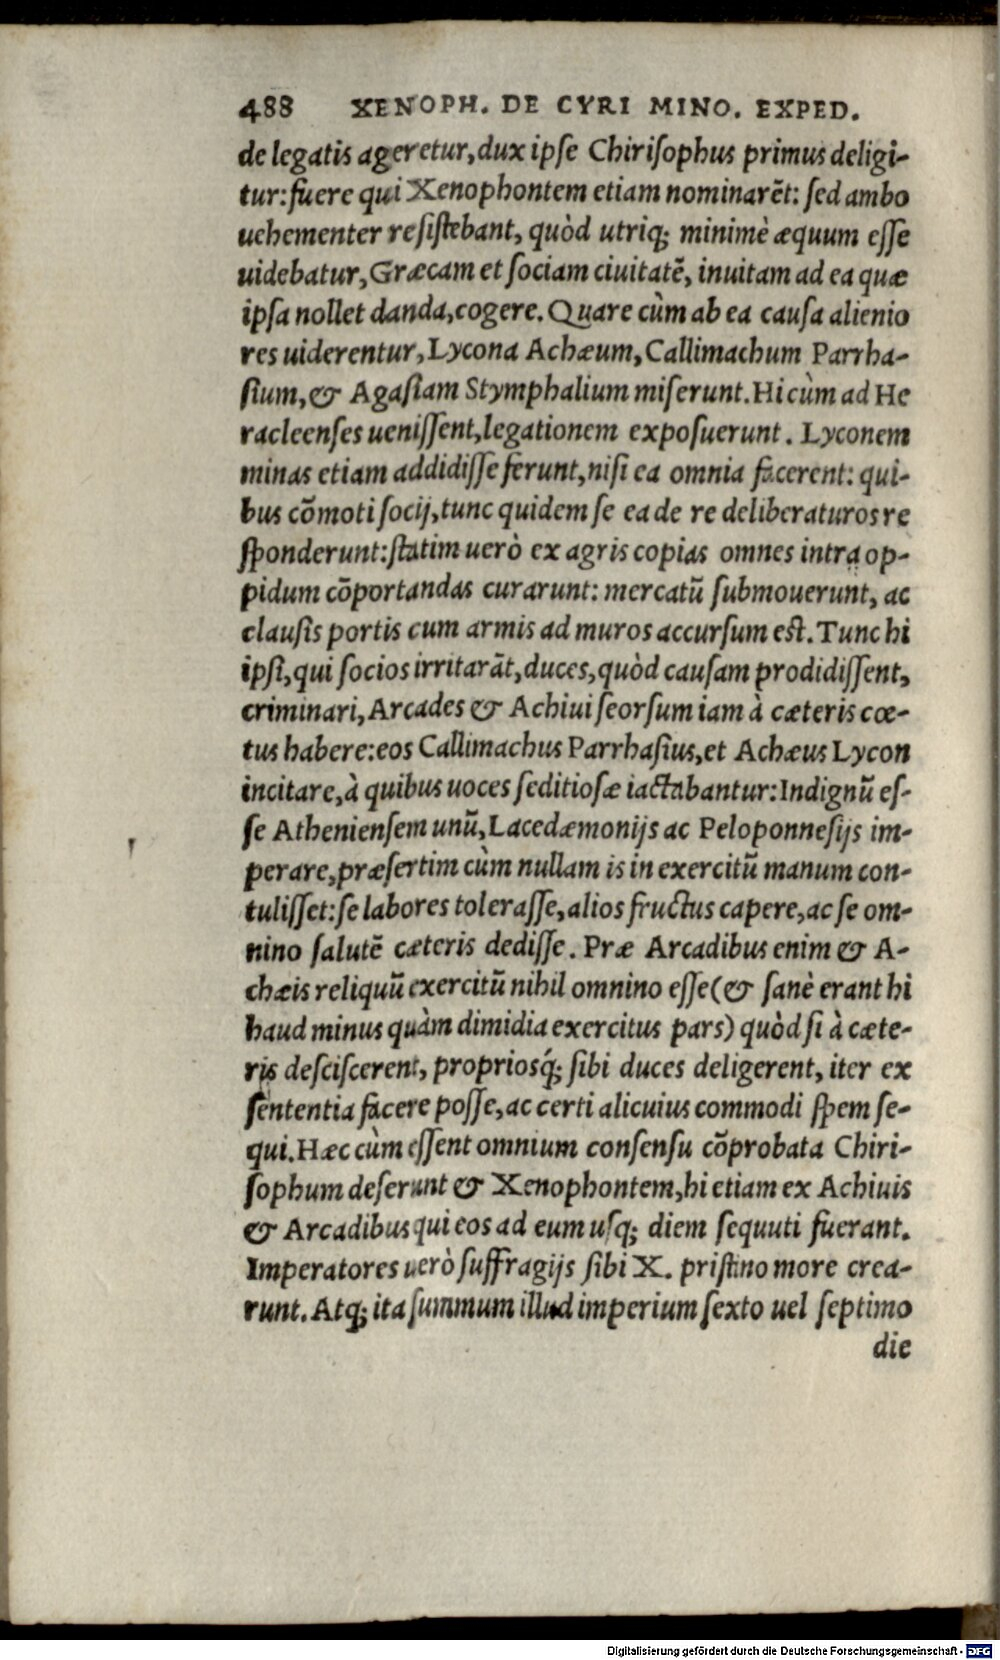 488 XENOPH. DE CYRI MINO. EXPED.
de legatis ageretur, dux ipſe Chiriſophus primus deligi-
tur: fuere qui Xenophontem etiam nominarẽt: ſed ambo
uehementer reſiſtebant, quòd utriq; minimè æquum eſſe
uidebatur, Græcam et ſociam ciuitatẽ, inuitam ad ea quæ
ipſa nollet danda, cogere. Quare cùm ab ea cauſa alienio
res uiderentur, Lycona Achæum, Callimachum Parrha-
ſium, & Agaſiam Stymphalium miſerunt. Hi cùm ad He
racleenſes ueniſſent, legationem expoſuerunt. Lyconem
minas etiam addidiſſe ferunt, niſi ea omnia facerent: qui-
bus cõmoti ſocij, tunc quidem ſe ea de re deliberaturos re
ſponderunt: ſtatim uerò ex agris copias omnes intra op-
pidum cõportandas curarunt: mercatũ ſubmouerunt, ac
clauſis portis cum armis ad muros accurſum eſt. Tunc hi
ipſi, qui ſocios irritarãt, duces, quòd cauſam prodidiſſent,
criminari, Arcades & Achiui ſeorſum iam à cæteris cœ-
tus habere: eos Callimachus Parrhaſius, et Achæus Lycon
incitare, à quibus uoces ſeditioſæ iactabantur: Indignũ eſ-
ſe Athenienſem unũ, Lacedæmonijs ac Peloponneſijs im-
perare, præſertim cùm nullam is in exercitũ manum con-
tuliſſet: ſe labores toleraſſe, alios fructus capere, ac ſe om-
nino ſalutẽ cæteris dediſſe. Præ Arcadibus enim & A-
chæis reliquũ exercitũ nihil omnino eſſe (& ſanè erant hi
haud minus quàm dimidia exercitus pars) quòd ſi à cæte-
ris deſciſcerent, proprioſq́; ſibi duces deligerent, iter ex
ſententia facere poſſe, ac certi alicuius commodi ſpem ſe-
qui. Hæc cùm eſſent omnium conſenſu cõprobata Chiri-
ſophum deſerunt & Xenophontem, hi etiam ex Achiuis
& Arcadibus qui eos ad eum uſq; diem ſequuti fuerant.
Imperatores uerò ſuffragijs ſibi X. priſtino more crea-
runt. Atq; ita ſummum illud imperium ſexto uel ſeptimo
die
Digitalisierung gefördert durch die Deutsche Forschungsgemeinschaft - DFG